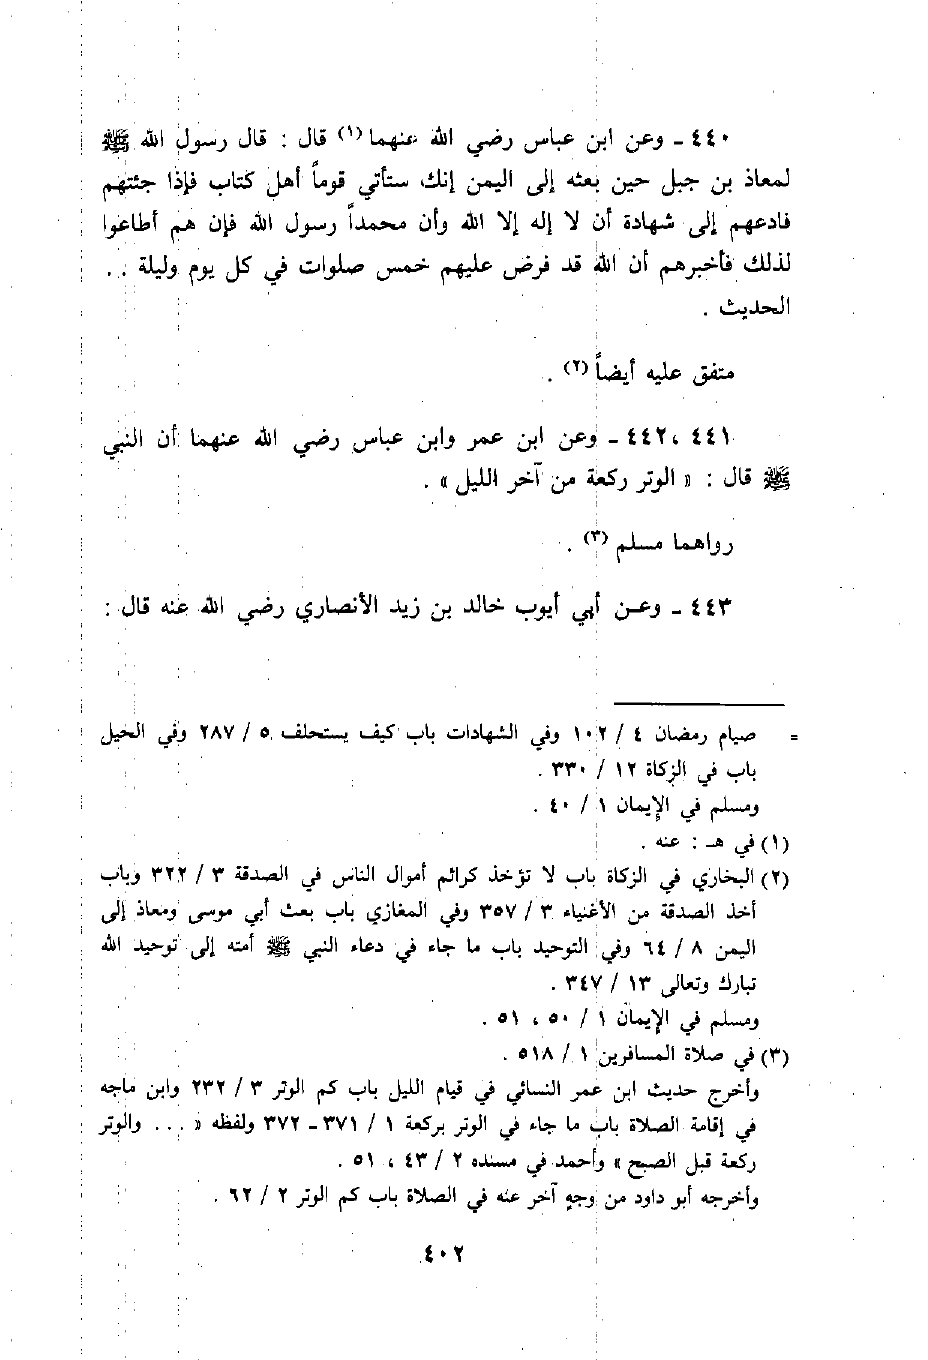 ٤٤٠ ـ وعن ابن عباس رضي الله عنهما (١) قال : قال رسول الله ﷺ
لمعاذ بن جبل حين بعثه إلى اليمن إنك ستأتي قوماً أهل كتاب فإذا جئتهم
فادعهم إلى شهادة أن لا إله إلا الله وأن محمداً رسول الله فإن هم أطاعوا
لذلك فأخبرهم أن الله قد فرض عليهم خمس صلوات في كل يوم وليلة . .
الحديث .
متفق عليه أيضاً (٢) .
٤٤١ ، ٤٤٢ ـ وعن ابن عمر وابن عباس رضي الله عنهما أن النبي
ﷺ قال : « الوتر ركعة من آخر الليل » .
رواهما مسلم (٣) .
٤٤٣ ـ وعن أبي أيوب خالد بن زيد الأنصاري رضي الله عنه قال :
= صيام رمضان ٤ / ١٠٢ وفي الشهادات باب كيف يستحلف ٥ / ٢٨٧ وفي الحيل
باب في الزكاة ١٢ / ٣٣٠ .
ومسلم في الإيمان ١ / ٤٠ .
(١) في هـ : عنه .
(٢) البخاري في الزكاة باب لا تؤخذ كرائم أموال الناس في الصدقة ٣ / ٣٢٢ وباب
أخذ الصدقة من الأغنياء ٣ / ٣٥٧ وفي المغازي باب بعث أبي موسى ومعاذ إلى
اليمن ٨ / ٦٤ وفي التوحيد باب ما جاء في دعاء النبي ﷺ أمته إلى توحيد الله
تبارك وتعالى ١٣ / ٣٤٧ .
ومسلم في الإيمان ١ / ٥٠ ، ٥١ .
(٣) في صلاة المسافرين ١ / ٥١٨ .
وأخرج حديث ابن عمر النسائي في قيام الليل باب كم الوتر ٣ / ٢٣٢ وابن ماجه
في إقامة الصلاة باب ما جاء في الوتر بركعة ١ / ٣٧١ ـ ٣٧٢ ولفظه « . . . والوتر
ركعة قبل الصبح » وأحمد في مسنده ٢ / ٤٣ ، ٥١ .
وأخرجه أبو داود من وجهٍ آخر عنه في الصلاة باب كم الوتر ٢ / ٦٢ .
٤٠٢